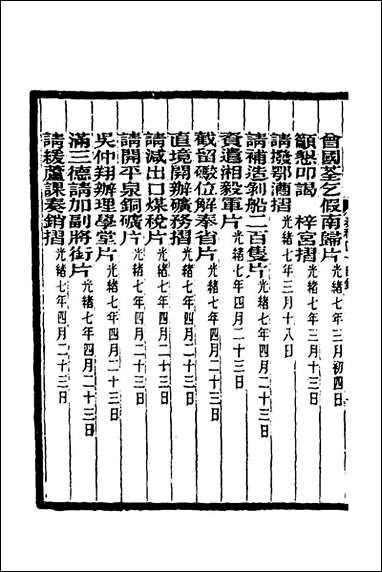 曾國荃乞假南歸片光緒七年三月初四日
籲懇叩謁 梓宮摺光緒七年三月十三日
請撥鄂漕摺光緒七年三月十八日
請補造剝船二百隻片光緒七年四月二十三日
資遣湘毅軍片光緒七年四月二十三日
截留礮位解奉省片光緒七年四月二十三日
直境開辦礦務摺光緒七年四月二十三日
請減出口煤稅片光緒七年四月二十三日
請開平泉銅礦片光緒七年四月二十三日
吳仲翔辦理學堂片光緒七年四月二十三日
滿三德請加副將銜片光緒七年四月二十三日
請緩蘆課奏銷摺光緒七年四月二十三日